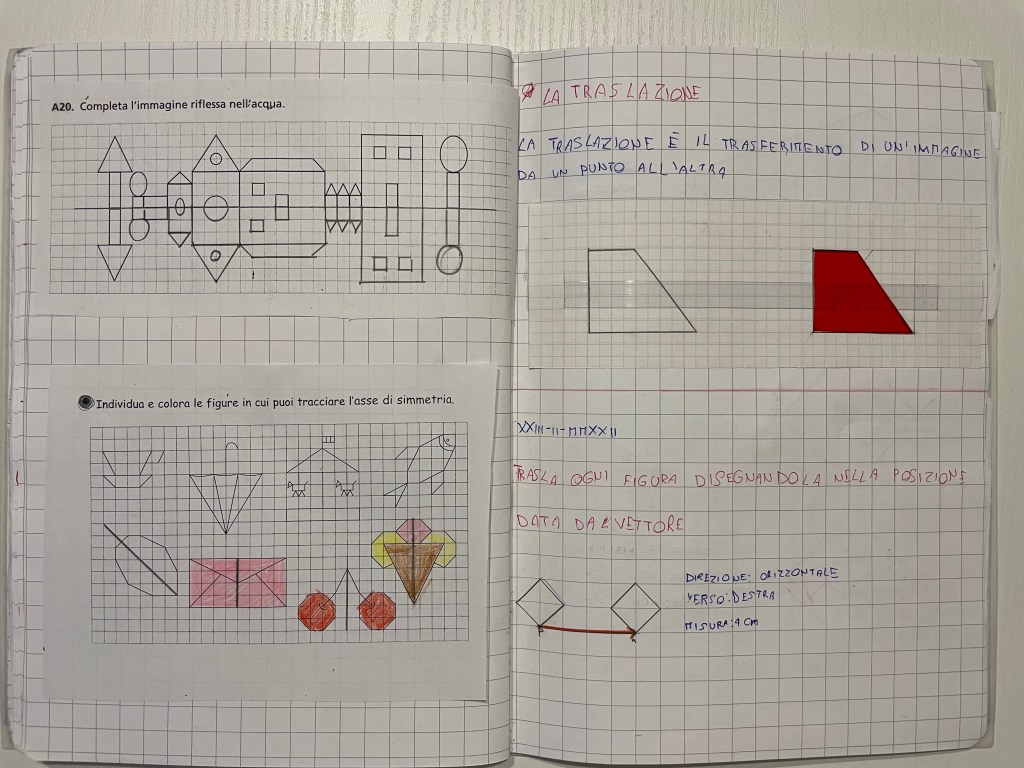 A20. Completa l'immagine riflessa nell'acqua.
Individua e colora le figure in cui puoi tracciare l'asse di simmetria.
LA TRASLAZIONE
LA TRASLAZIONE È IL TRASFERIMENTO DI UN'IMMAGINE
DA UN PUNTO ALL'ALTRA
XXIII-II-MMXXII
TRASLA OGNI FIGURA DISEGNANDOLA NELLA POSIZIONE
DATA DAL VETTORE
DIREZIONE: ORIZZONTALE
VERSO: DESTRA
MISURA: 4 cm